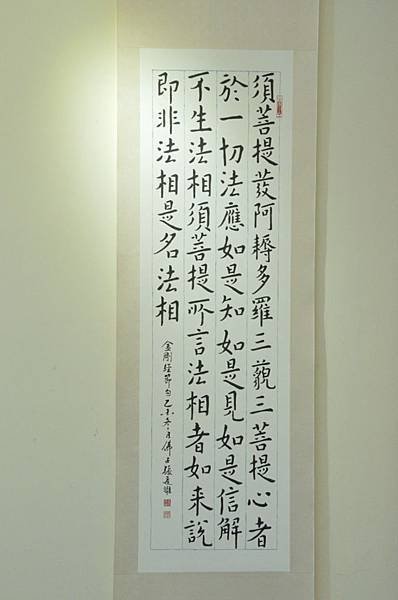 須菩提發阿耨多羅三藐三菩提心者
於一切法應如是知如是見如是信解
不生法相須菩提所言法相者如来說
即非法相是名法相
金剛經節句乙未冬月佛子張